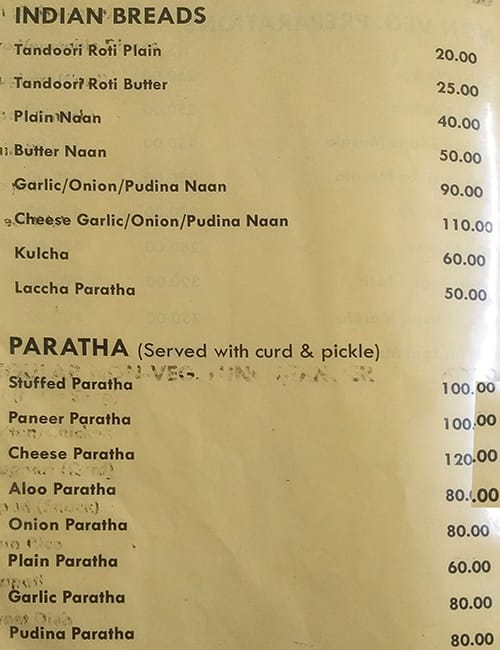 INDIAN BREADS
Tandoori Roti Plain 20.00
Tandoori Roti Butter 25.00
Plain Naan 40.00
Butter Naan 50.00
Garlic/Onion/Pudina Naan 90.00
Cheese Garlic/Onion/Pudina Naan 110.00
Kulcha 60.00
Laccha Paratha 50.00
PARATHA (Served with curd & pickle)
Stuffed Paratha 100.00
Paneer Paratha 100.00
Cheese Paratha 120.00
Aloo Paratha 80.00
Onion Paratha 80.00
Plain Paratha 60.00
Garlic Paratha 80.00
Pudina Paratha 80.00